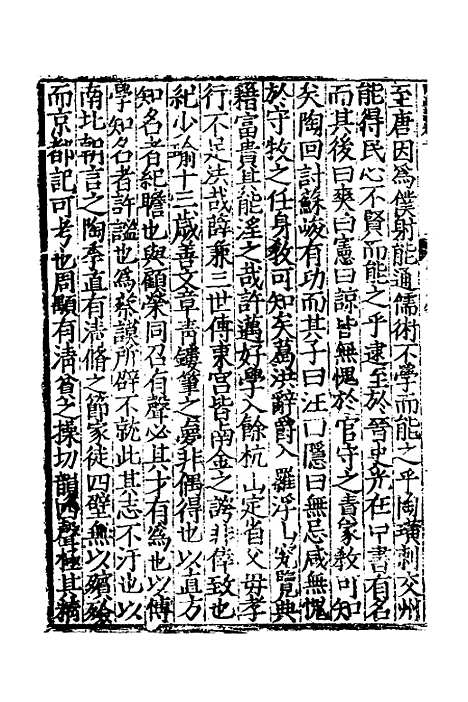 至唐因為僕射能通儒術不學而能之乎陶璜刺交州
能得民心不賢而能之乎逮至於晉史光在中書有名
而其後曰爽曰憲曰諒皆無愧於官守之責家教可知
矣陶回討蘇峻有功而其子曰汪曰隱曰無忌咸無愧
於守牧之任身教可知矣葛洪辭爵入羅浮山究覽典
籍富貴其能淫之哉許邁好學入餘杭山定省父母孝
行不足法哉薛兼三世傅東宮皆南金之譽非倖致也
紀少瑜十三歲善文章青鏤筆之夢非偶得也以直方
知名者紀瞻也與顧榮同召有聲必其才有為也以博
學知名者許謐也為蔡謨所辟不就此其志不汙也以
南北朝言之陶季直有清脩之節家徒四壁無以殯殮
而京都記可考也周顒有清貧之操切韻四聲極其精